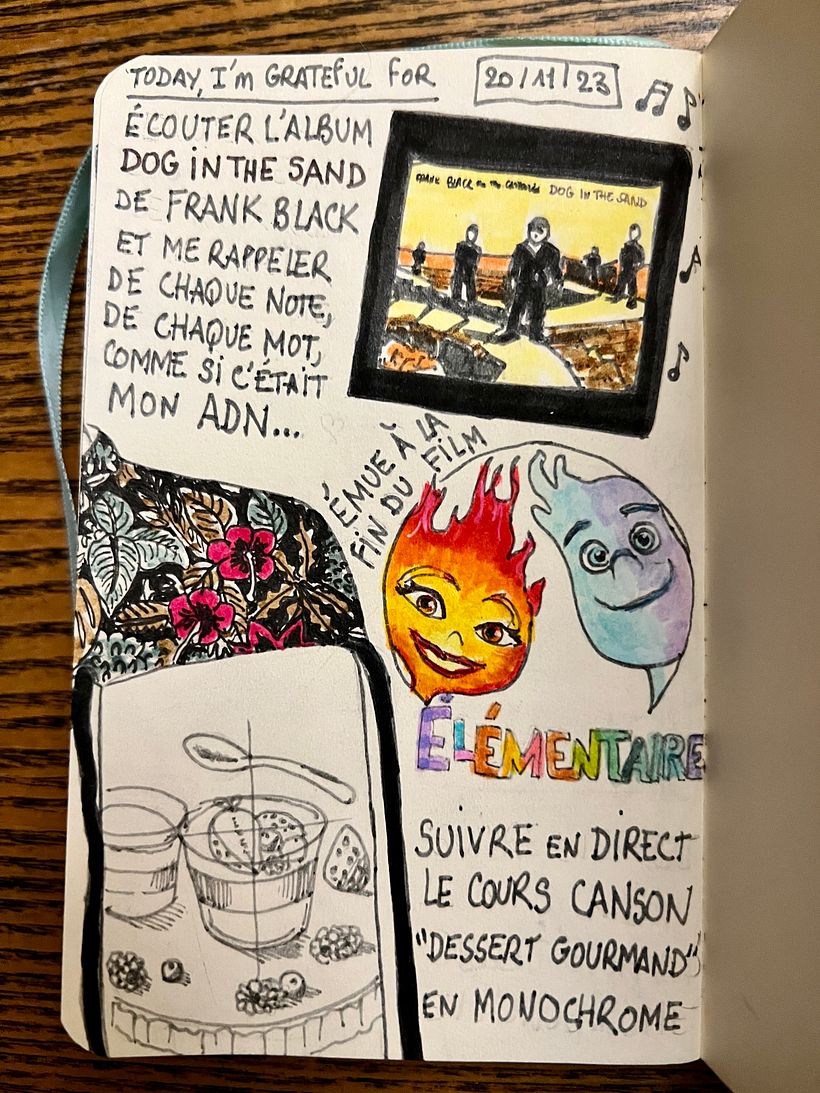 TODAY, I'M GRATEFUL FOR
20/11/23
ÉCOUTER L'ALBUM
DOG IN THE SAND
DE FRANK BLACK
ET ME RAPPELER
DE CHAQUE NOTE,
DE CHAQUE MOT,
COMME SI C'ÉTAIT
MON ADN...
FRANK BLACK AND THE CATHOLICS DOG IN THE SAND
ÉMUE À LA
FIN DU FILM
ÉLÉMENTAIRE
SUIVRE EN DIRECT
LE COURS CANSON
"DESSERT GOURMAND"
EN MONOCHROME